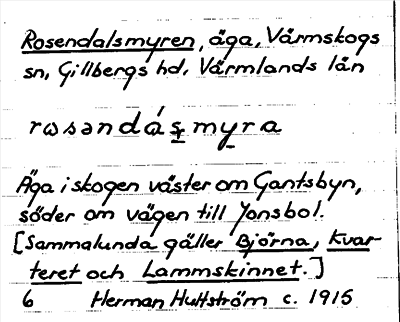 Rosendalsmyren, äga, Värmskogs
sn, Gillbergs hd, Värmlands län
rosəndás̱my̱ra
Äga i skogen väster om Gantsbyn,
söder om vägen till Jonsbol.
[Sammalunda gäller Björna, Kvar-
teret och Lammskinnet.]
6 Herman Hultström c. 1915